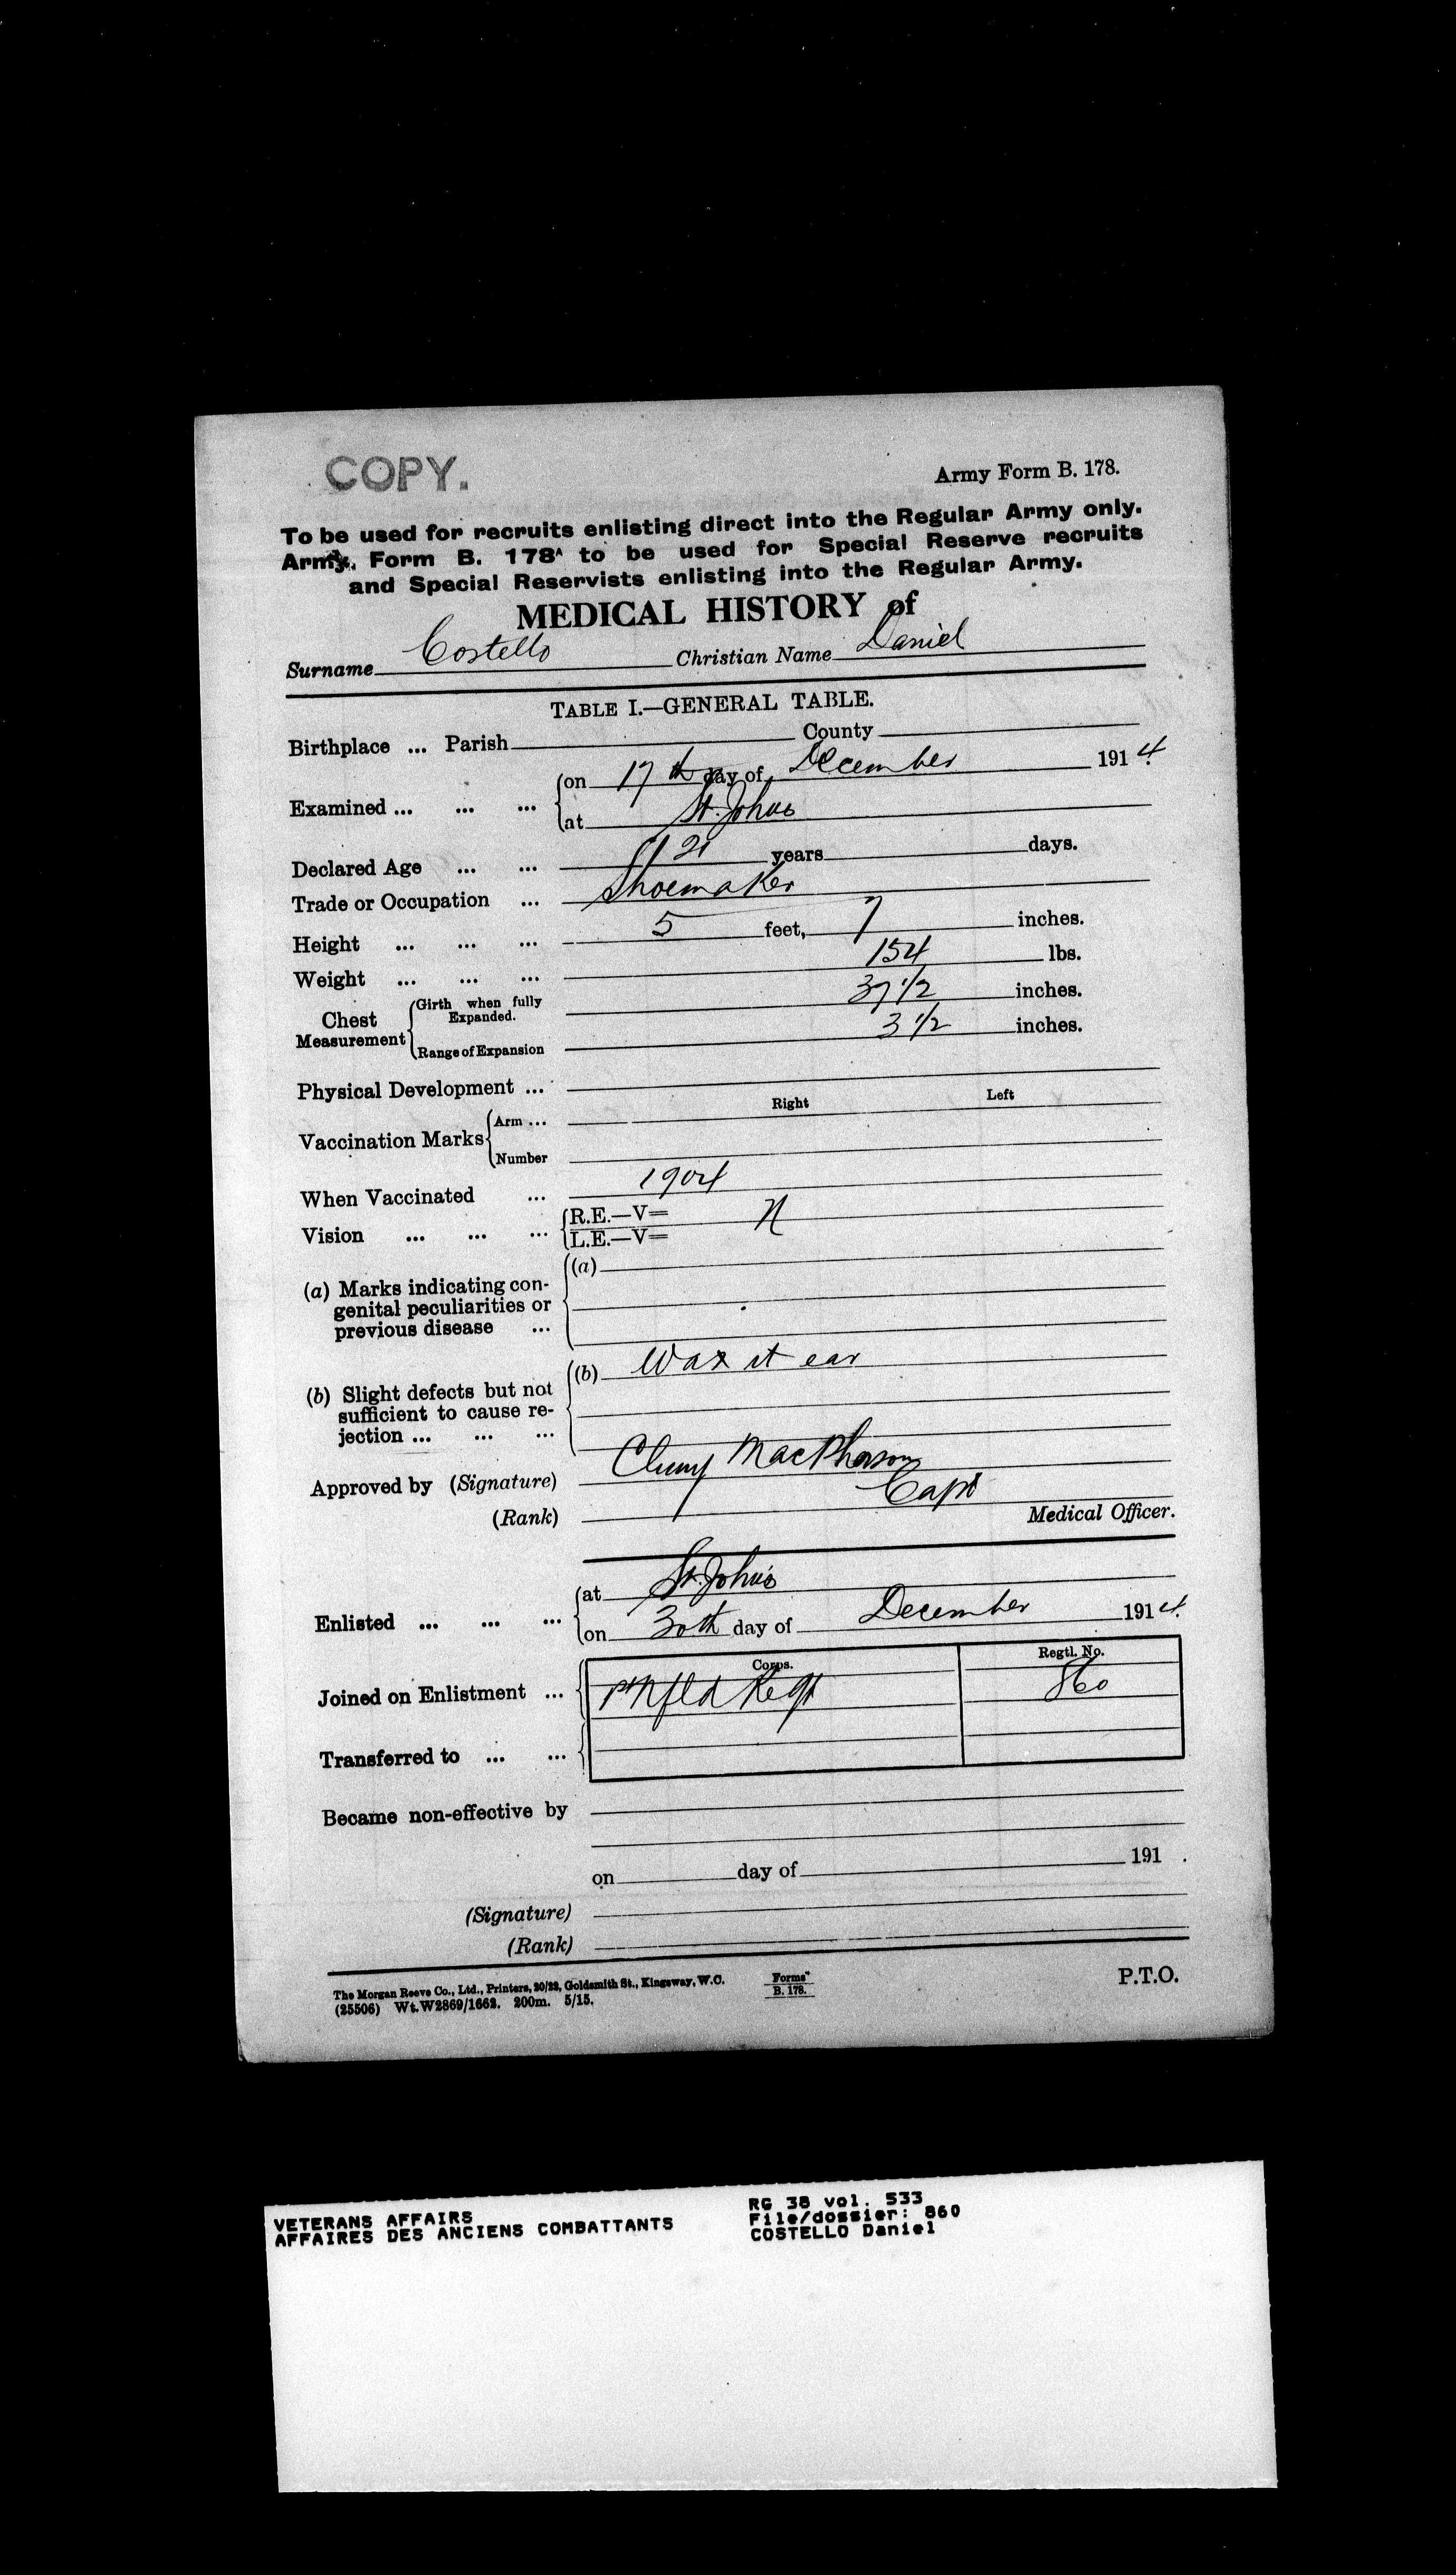 COPY.
Army Form B. 178.
To be used for recruits enlisting direct into the Regular Army only.
Army Form B. 178ᴬ to be used for Special Reserve recruits
and Special Reservists enlisting into the Regular Army.
MEDICAL HISTORY of
Surname Costello Christian Name Daniel
TABLE I.—GENERAL TABLE.
Birthplace ... Parish County
Examined ... ... ... on 17th day of December 1914.
at St. John's
Declared Age ... ... 21 years days.
Trade or Occupation ... Shoemaker
Height ... ... ... 5 feet, 7 inches.
Weight ... ... ... 154 lbs.
Chest Measurement Girth when fully Expanded. 37 1/2 inches.
Range of Expansion 3 1/2 inches.
Physical Development ...
Right Left
Vaccination Marks Arm ...
Number
When Vaccinated ... 1904
Vision ... ... ... R.E.—V= N
L.E.—V=
(a) Marks indicating con-
genital peculiarities or
previous disease ...
(a)
(b) Slight defects but not
sufficient to cause re-
jection ... ... ...
(b) Wax rt ear
Approved by (Signature) Cluny MacPherson
(Rank) Capt
Medical Officer.
Enlisted ... ... ... at St. John's
on 30th day of December 1914.
Corps. Regtl. No.
Joined on Enlistment ... 1st Nfld Regt 860
Transferred to ... ...
Became non-effective by
on day of 191 .
(Signature)
(Rank)
The Morgan Reeve Co., Ltd., Printers, 20/22, Goldsmith St., Kingsway, W.C.
(25506) Wt. W2869/1662. 200m. 5/15.
Forms
B. 178.
P.T.O.
VETERANS AFFAIRS
AFFAIRES DES ANCIENS COMBATTANTS
RG 38 vol. 533
File/dossier: 860
COSTELLO Daniel